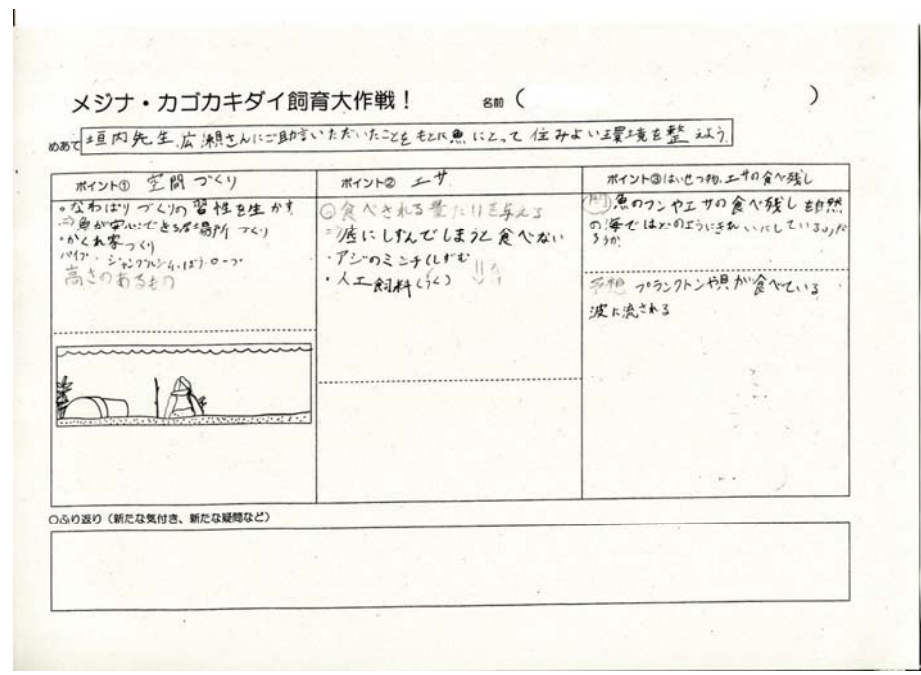 メジナ・カゴカキダイ飼育大作戦！ 名前（ ）
めあて 垣内先生、広瀬さんにご助言いただいたことをもとに魚にとって住みよい環境を整えよう。
ポイント① 空間づくり
・なわばりづくりの習性を生かす
⇒魚が安心できる居場所づくり
・かくれ家づくり
パイプ・ジャングルジム・ぼう・ロープ
高さのあるもの
ポイント② エサ
食べきれる量だけを与える
⇒底にしずんでしまうと食べない
・アジのミンチ(しずむ
・人工飼料(うく)
ポイント③はいせつ物、エサの食べ残し
問 魚のフンやエサの食べ残しを自然
の海ではどのようにきれいにしているのだ
ろうか。
予想 プランクトンや貝が食べている
波に流される
○ふり返り（新たな気付き、新たな疑問など）